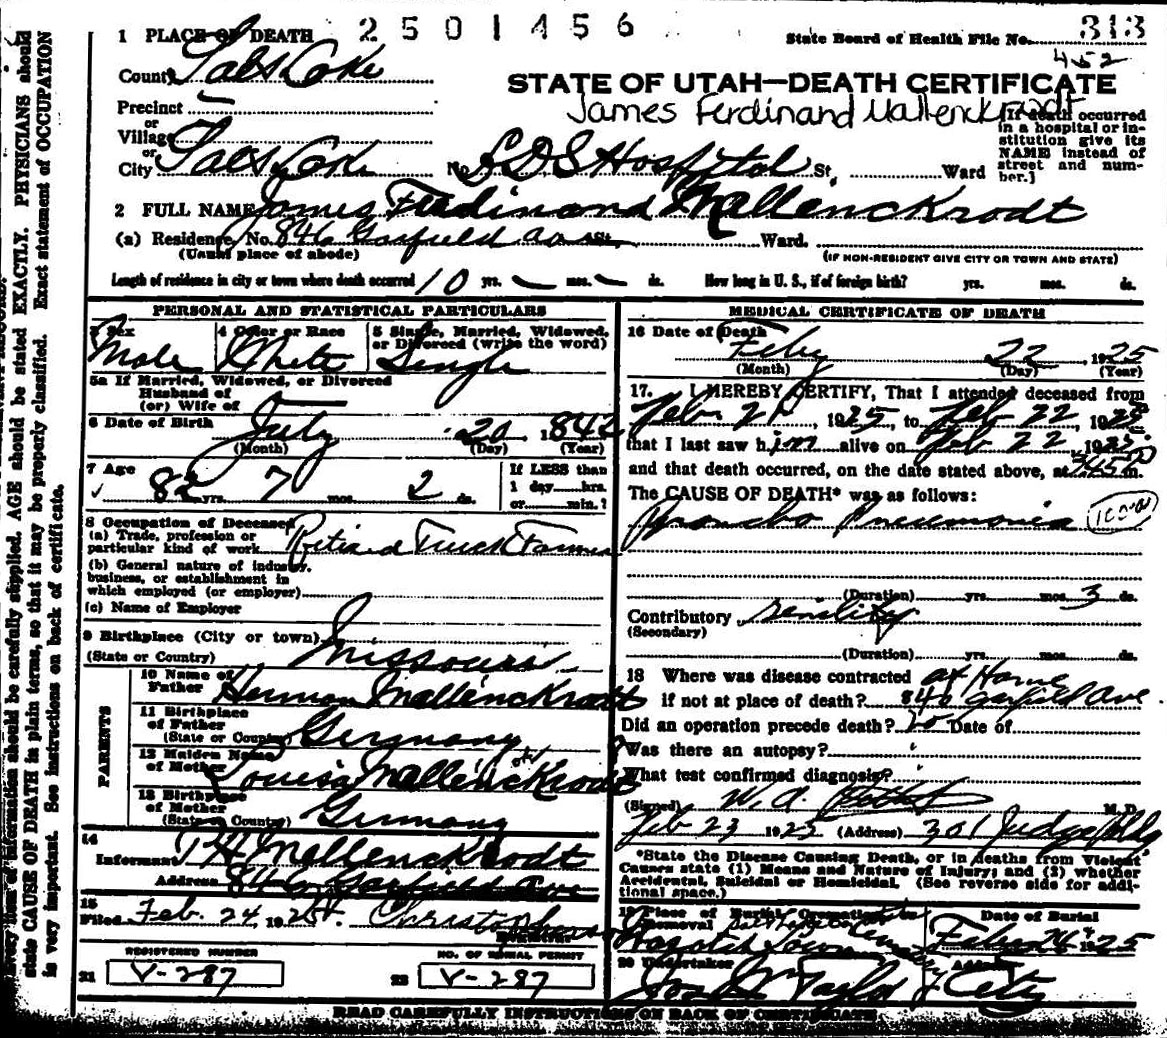 2501456
State Board of Health File No. 313
452
1 PLACE OF DEATH
County Salt Lake
STATE OF UTAH—DEATH CERTIFICATE
James Ferdinand Mallenckrodt
Precinct
or
Village
or
City Salt Lake No. L D S Hospital St. Ward
[If death occurred
in a hospital or in-
stitution give its
NAME instead of
street and num-
ber.]
2 FULL NAME James Ferdinand Mallenckrodt
(a) Residence, No. 846 Garfield av St. Ward.
(Usual place of abode)
(IF NON-RESIDENT GIVE CITY OR TOWN AND STATE)
Length of residence in city or town where death occurred 10 yrs. mos. ds. How long in U. S., if of foreign birth? yrs. mos. ds.
PERSONAL AND STATISTICAL PARTICULARS
3 Sex 4 Color or Race 5 Single, Married, Widowed,
or Divorced (write the word)
Male White Single
5a If Married, Widowed, or Divorced
Husband of
(or) Wife of
6 Date of Birth July 20 1842
(Month) (Day) (Year)
7 Age 82 yrs. 7 mos. 2 ds.
If LESS than
1 day hrs.
or min.?
8 Occupation of Deceased
(a) Trade, profession or
particular kind of work Retired Truck Farmer
(b) General nature of industry,
business, or establishment in
which employed (or employer)
(c) Name of Employer
9 Birthplace (City or town)
(State or Country) Missouri
PARENTS
10 Name of
Father Herman Mallenckrodt
11 Birthplace
of Father
(State or Country) Germany
12 Maiden Name
of Mother Louisa Mallenckrodt
13 Birthplace
of Mother
(State or Country) Germany
14
Informant Mallenckrodt
Address 846 Garfield Ave
15
Filed Feb. 24, 192
REGISTERED NUMBER
21 V-287
NO. OF BURIAL PERMIT
22 V-287
MEDICAL CERTIFICATE OF DEATH
16 Date of Death Feby 22, 1925
(Month) (Day) (Year)
17. I HEREBY CERTIFY, That I attended deceased from
Feb. 21, 1925, to Feb 22, 1925
that I last saw him alive on Feb 22, 1925,
and that death occurred, on the date stated above, at 345 P m.
The CAUSE OF DEATH* was as follows:
Broncho Pneumonia
(Duration) yrs. mos. 3 ds.
Contributory Senility
(Secondary)
(Duration) yrs. mos. ds.
18 Where was disease contracted at Home
if not at place of death? 846 Garfield Ave.
Did an operation precede death? no Date of
Was there an autopsy?
What test confirmed diagnosis?
(Signed) W. A. M.D.
Feb 23 1925 (Address) 301 Judge Bldg
*State the Disease Causing Death, or in deaths from Violent
Causes state (1) Means and Nature of Injury; and (2) whether
Accidental, Suicidal or Homicidal. (See reverse side for addi-
tional space.)
19 Place of Burial, Cremation or
Removal
Date of Burial
Wasatch Lawn Cemetery Feby 26 1925
20 Undertaker Address
Taylor City
READ CAREFULLY INSTRUCTIONS ON BACK OF CERTIFICATE
Every item of information should be carefully supplied. AGE should be stated EXACTLY. PHYSICIANS should
state CAUSE OF DEATH in plain terms, so that it may be properly classified. Exact statement of OCCUPATION
is very important. See instructions on back of certificate.